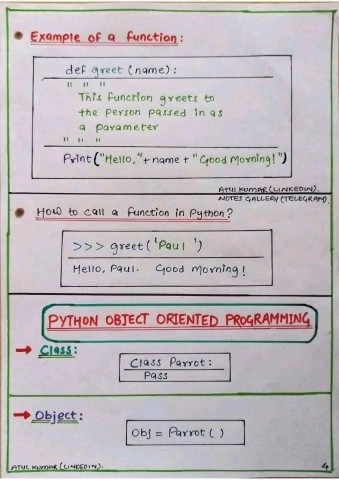 Example of a function:
def greet (name):
" " "
This function greets to
the person passed in as
a parameter
" " "
Print("Hello,"+name+"Good Morning!")
ATUL KUMAR (LINKEDIN).
NOTES GALLERY (TELEGRAM).
How to call a function in Python?
>>> greet('Paul ')
Hello, Paul. Good morning!
PYTHON OBJECT ORIENTED PROGRAMMING
→ Class:
Class Parrot:
Pass
→ Object:
Obj = Parrot ( )
ATUL KUMAR (LINKEDIN).
4